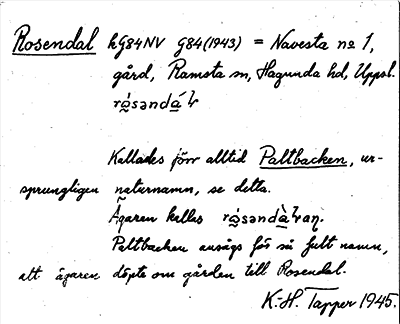 Rosendal kG84NV G84(1943) = Navesta no 1,
gård, Ramsta sn, Hagunda hd, Uppsl.
Kallades förr alltid Paltbacken, ur-
sprungligen naturnamn, se detta.
Ägaren kallas
Paltbacken ansågs för så fult namn,
att ägaren döpte om gården till Rosendal.
K.-H. Tapper 1945.